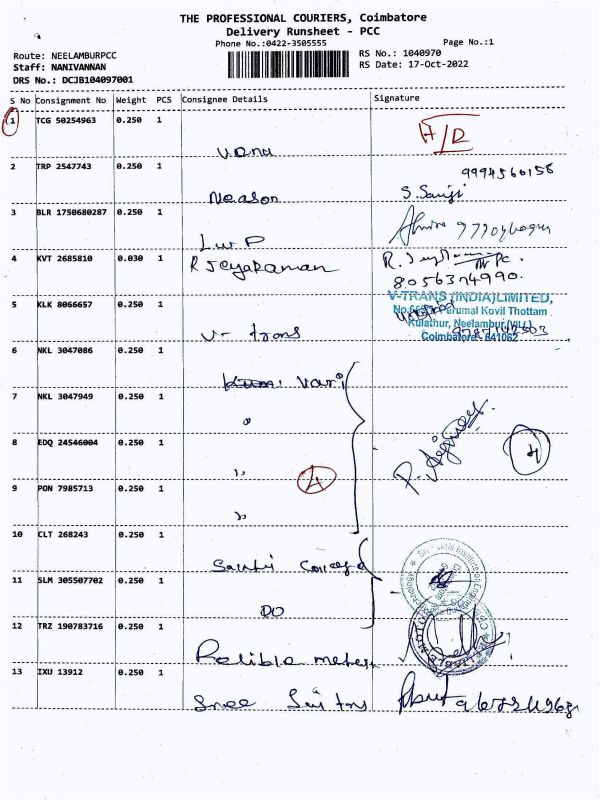 THE PROFESSIONAL COURIERS, Coimbatore
Delivery Runsheet - PCC
Phone No.:0422-3505555
Page No.:1
Route: NEELAMBURPCC
RS No.: 1040970
Staff: NANIVANNAN
RS Date: 17-Oct-2022
DRS No.: DCJB104097001
S No Consignment No Weight PCS Consignee Details Signature
1 TCG 50254963 0.250 1
2 TRP 2547743 0.250 1 9994560158
Neason
3 BLR 1750680287 0.250 1
4 KVT 2685810 0.030 1
R Jeyaraman
8056374990.
5 KLK 8066657 0.250 1
V-TRANS (INDIA) LIMITED,
Perumal Kovil Thottam
Kulathur, Neelambur (VILL)
Coimbatore - 641062
V- trans
6 NKL 3047086 0.250 1
Vari
7 NKL 3047949 0.250 1
8 EDQ 24546004 0.250 1
4
9 PON 7985713 0.250 1
10 CLT 268243 0.250 1
11 SLM 305507702 0.250 1
DO
12 TRZ 190783716 0.250 1
13 IXU 13912 0.250 1
Sree Sai